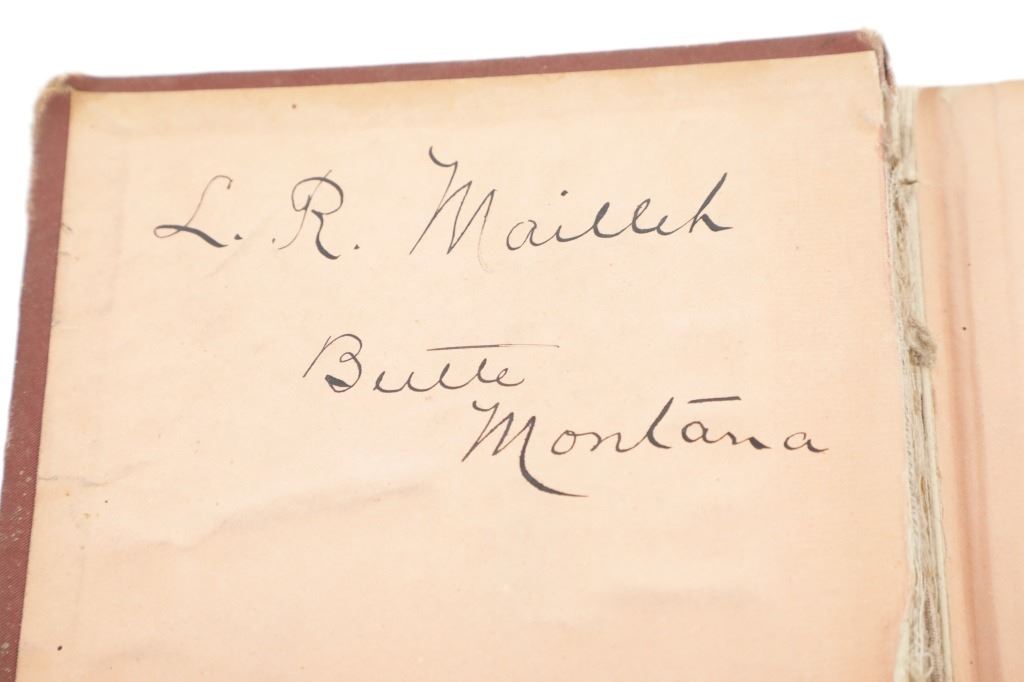 L. R. Mailleh
Butte
Montana